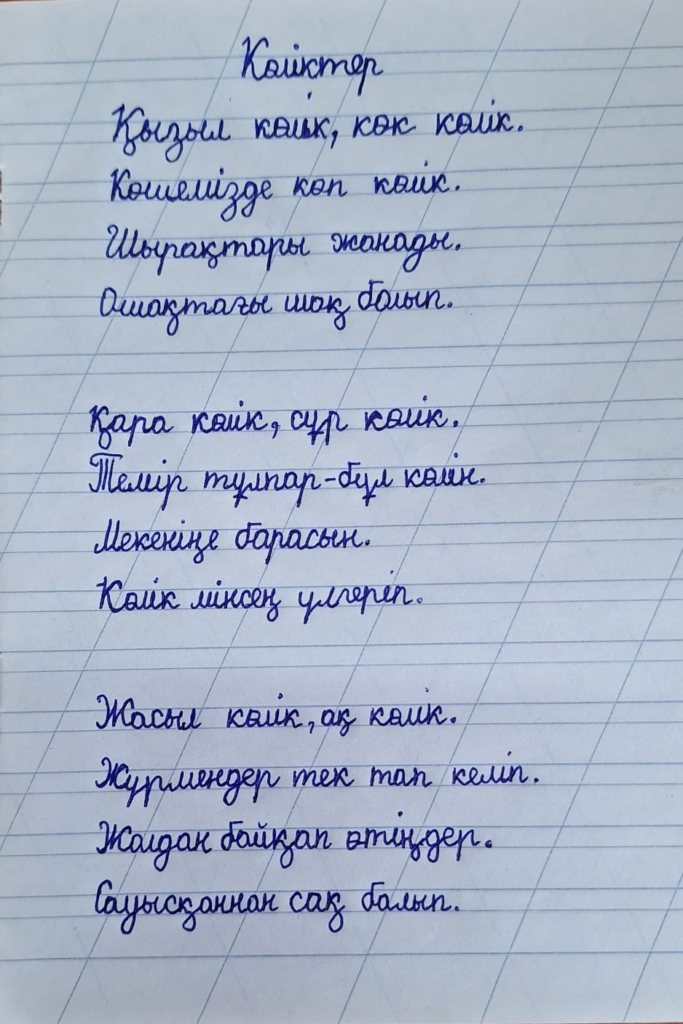 Көліктер
Қызыл көлік, көк көлік.
Көшемізде көп көлік.
Шырақтары жанады.
Ошақтағы шоқ болып.
Қара көлік, сұр көлік.
Темір тұлпар-бұл көлік.
Мекеніңе барасың.
Көлік мінсең үлгеріп.
Жасыл көлік, ақ көлік.
Жүрмеңдер тек тап келіп.
Жолдан байқап өтіңдер.
Сауысқаннан сақ болып.